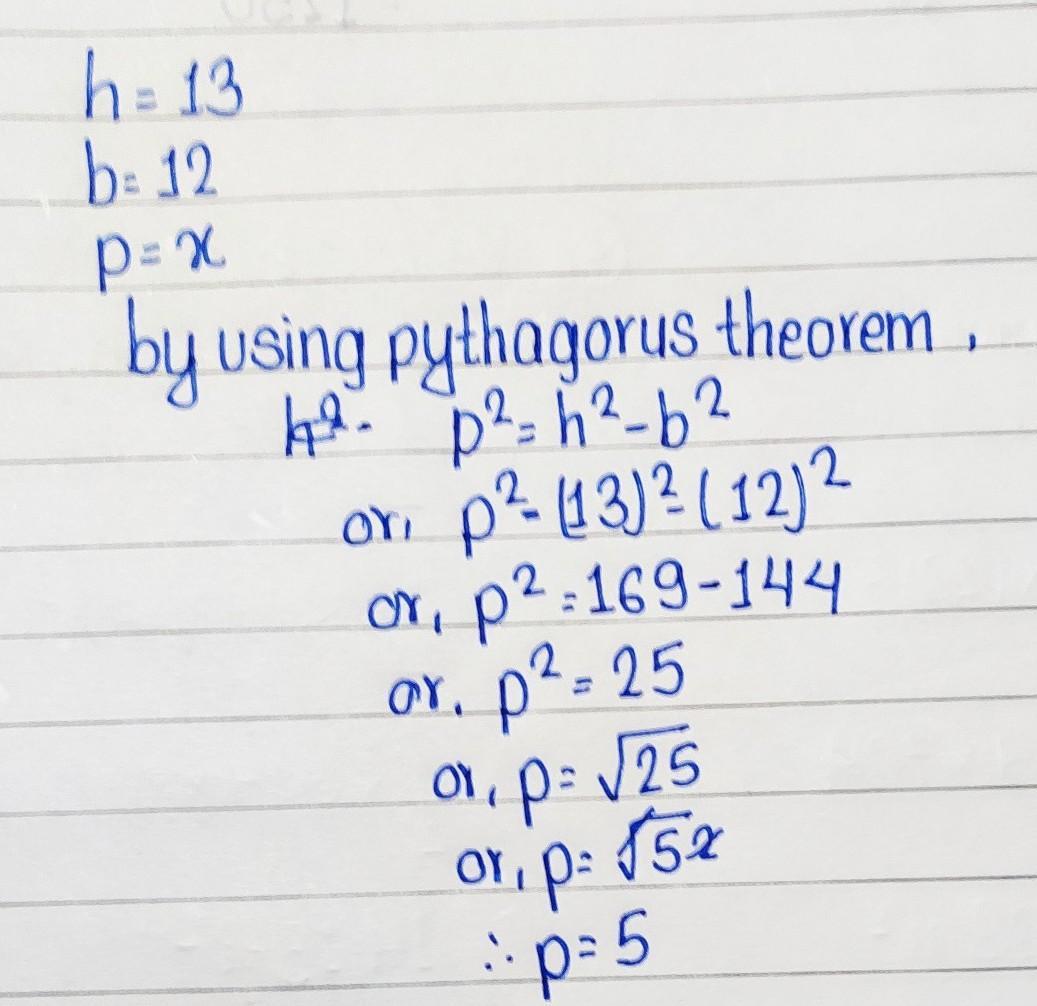 h = 13
b = 12
p = x
by using pythagorus theorem,
p² = h² - b²
or, p² = (13)² - (12)²
or, p² = 169 - 144
or, p² = 25
or, p = √25
or, p = √5²
∴ p = 5